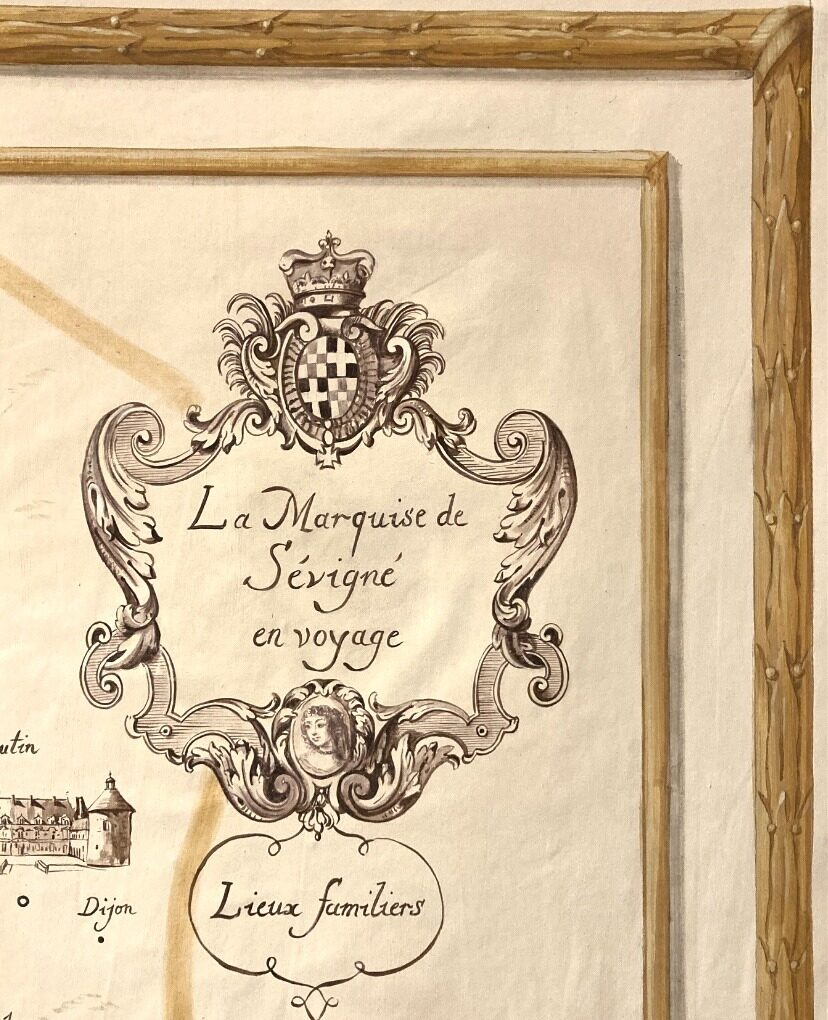 La Marquise de
Sévigné
en voyage
utin
Dijon
Lieux familiers